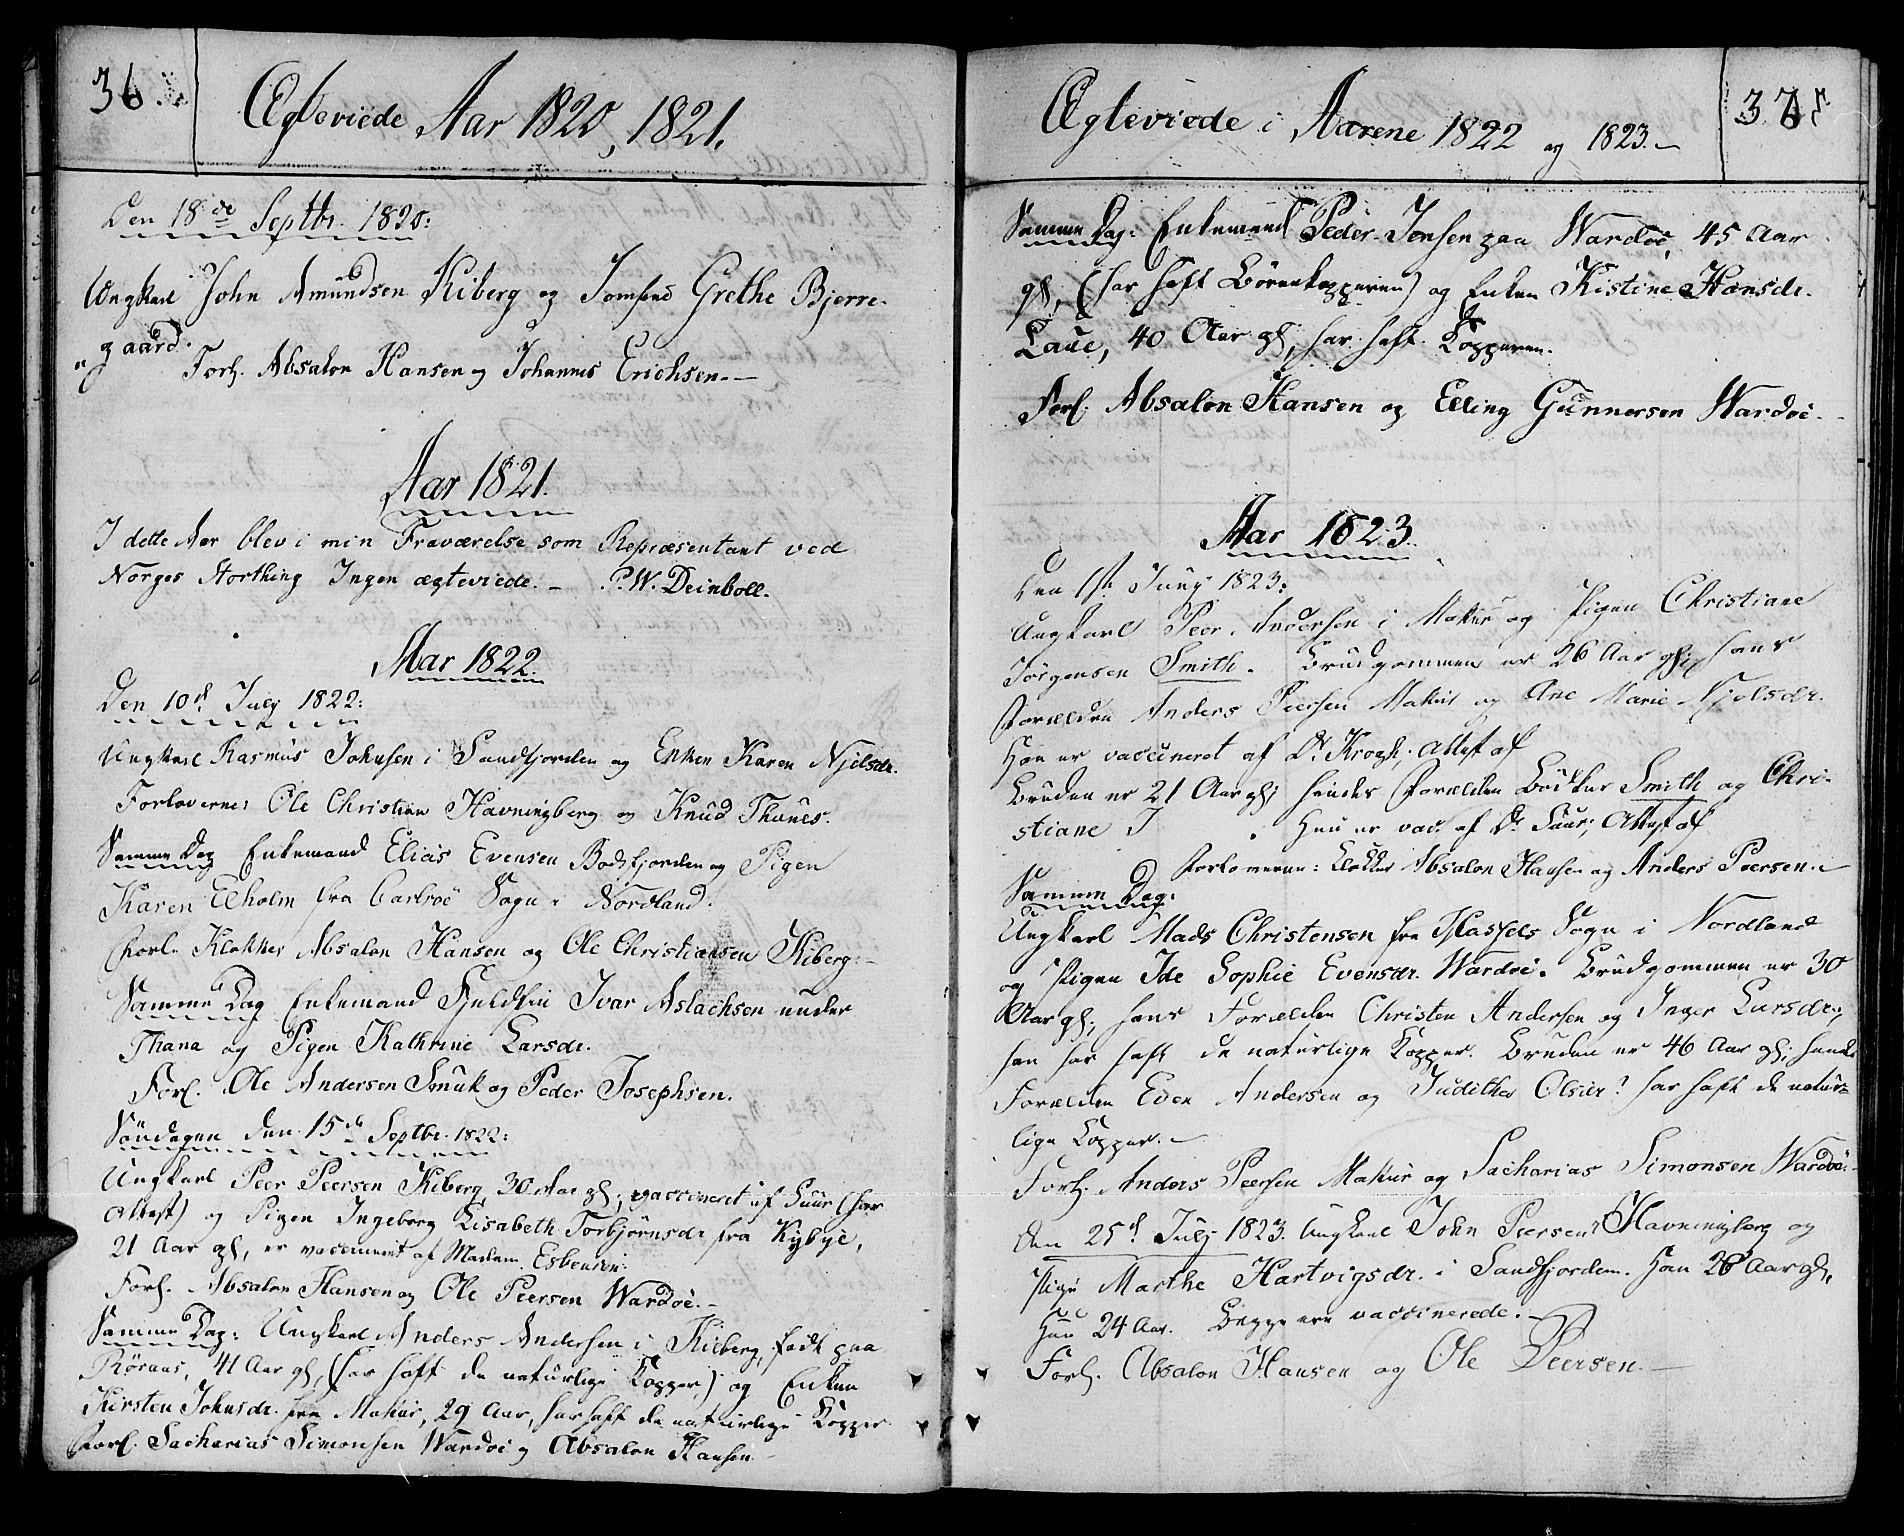 36.
Ægteviede Aar 1820, 1821.
Den 18de Septbr. 1820:
Ungkarl John Amundsen Kiberg og Jomfrue Grethe Bjerre-
"gaard.
Forl. Absalon Hansen og Johannes Erichsen.-
Aar 1821.
I dette Aar blev i min Fraværelse som Repræsentant ved
Norges Storthing Ingen ægteviede.- P.W. Deinboll.
Aar 1822.
Den 10d July 1822:
Ungkarl Rasmus Johnsen i Sandfjorden og Enken Karen Njelsdr.
Forloverne: Ole Christian Havningberg og Knud Thunes.
Samme Dag Enkemand Elias Evensen Bodsfjorden og Pigen
Karen Elholm fra Carlsöe Sogn i Nordland.
Forl. Klokker Absalon Hansen og Ole Christiansen Kiberg.-
Samme Dag Enkemand Fjeldfin Ivar Aslachsen under
Thana og Pigen Kathrine Larsdr.
Forl. Ole Andersen Smuk og Peder Josephsen.
Söndagen den 15de Septbr. 1822:
Ungkarl Peer Peersen Kiberg, 30 Aar gl, vaccineret af Suur (har
Attest) og Pigen Ingeborg Lisabeth Torbjörnsdr fra Kybye,
21 Aar gl, er vaccineret af Madam Esbensen.
Forl. Absalon Hansen og Ole Peersen Wardöe.-
Samme Dag: Ungkarl Anders Andersen i Kiberg, född paa
Röraas, 41 Aar gl, (har haft de naturlige Kopper) og Enken
Kirsten Johnsdr. fra Makur, 29 Aar, har haft de naturlige Kopper
Forl. Sacharias Simonsen Wardöe og Absalon Hansen.-
Ægteviede i Aarene 1822 og 1823.-
37
Samme Dag: Enkemand Peder Jensen paa Wardöe, 45 Aar
gl, (har haft Börnekopperne) og Enken Kistine Hansdr.
Laue, 40 Aar gl, har haft Kopperne.
Forl. Absalon Hansen og Elling Gunnersen Wardöe.-
Aar 1823.
Den 1ste Juny 1823:
Ungkarl Peer Andersen i Makur og Pigen Christiane
Jörgensen Smith. Brudgommen er 26 Aar gl, hans
Forældre Anders Peersen Makur og Ane Marie Njelsdr.
Han er vaccineret af Dr Krogh; Attest af
Bruden er 21 Aar gl; hendes Forældre Bödker Smith og Chri-
stiane J . Hun er vac. af Dr Suur; Attest af
Forloverne: Klokker Absalon Hansen og Anders Peersen.-
Samme Dag:
Ungkarl Mads Christensen fra Hassels Sogn i Nordland
og Pigen Ide Sophie Evensdr. Wardöe. Brudgommen er 30
Aar gl; hans Forældre Christen Andersen og Inger Larsdr.,
han har haft de naturlige Kopper. Bruden er 46 Aar gl; hendes
Forældre Even Andersen og Judithe Olsdr! har haft de natur-
lige Kopper.-
Forl. Anders Peersen Makur og Sacharias Simonsen Wardöe.-
Den 25d July 1823. Ungkarl John Peersen Havningberg og
Pige Marthe Hartvigsdr. i Sandfjorden. Han 26 Aar gl,
Hun 24 Aar. Begge ere vaccinerede.-
Forl. Absalon Hansen og Ole Peersen.-